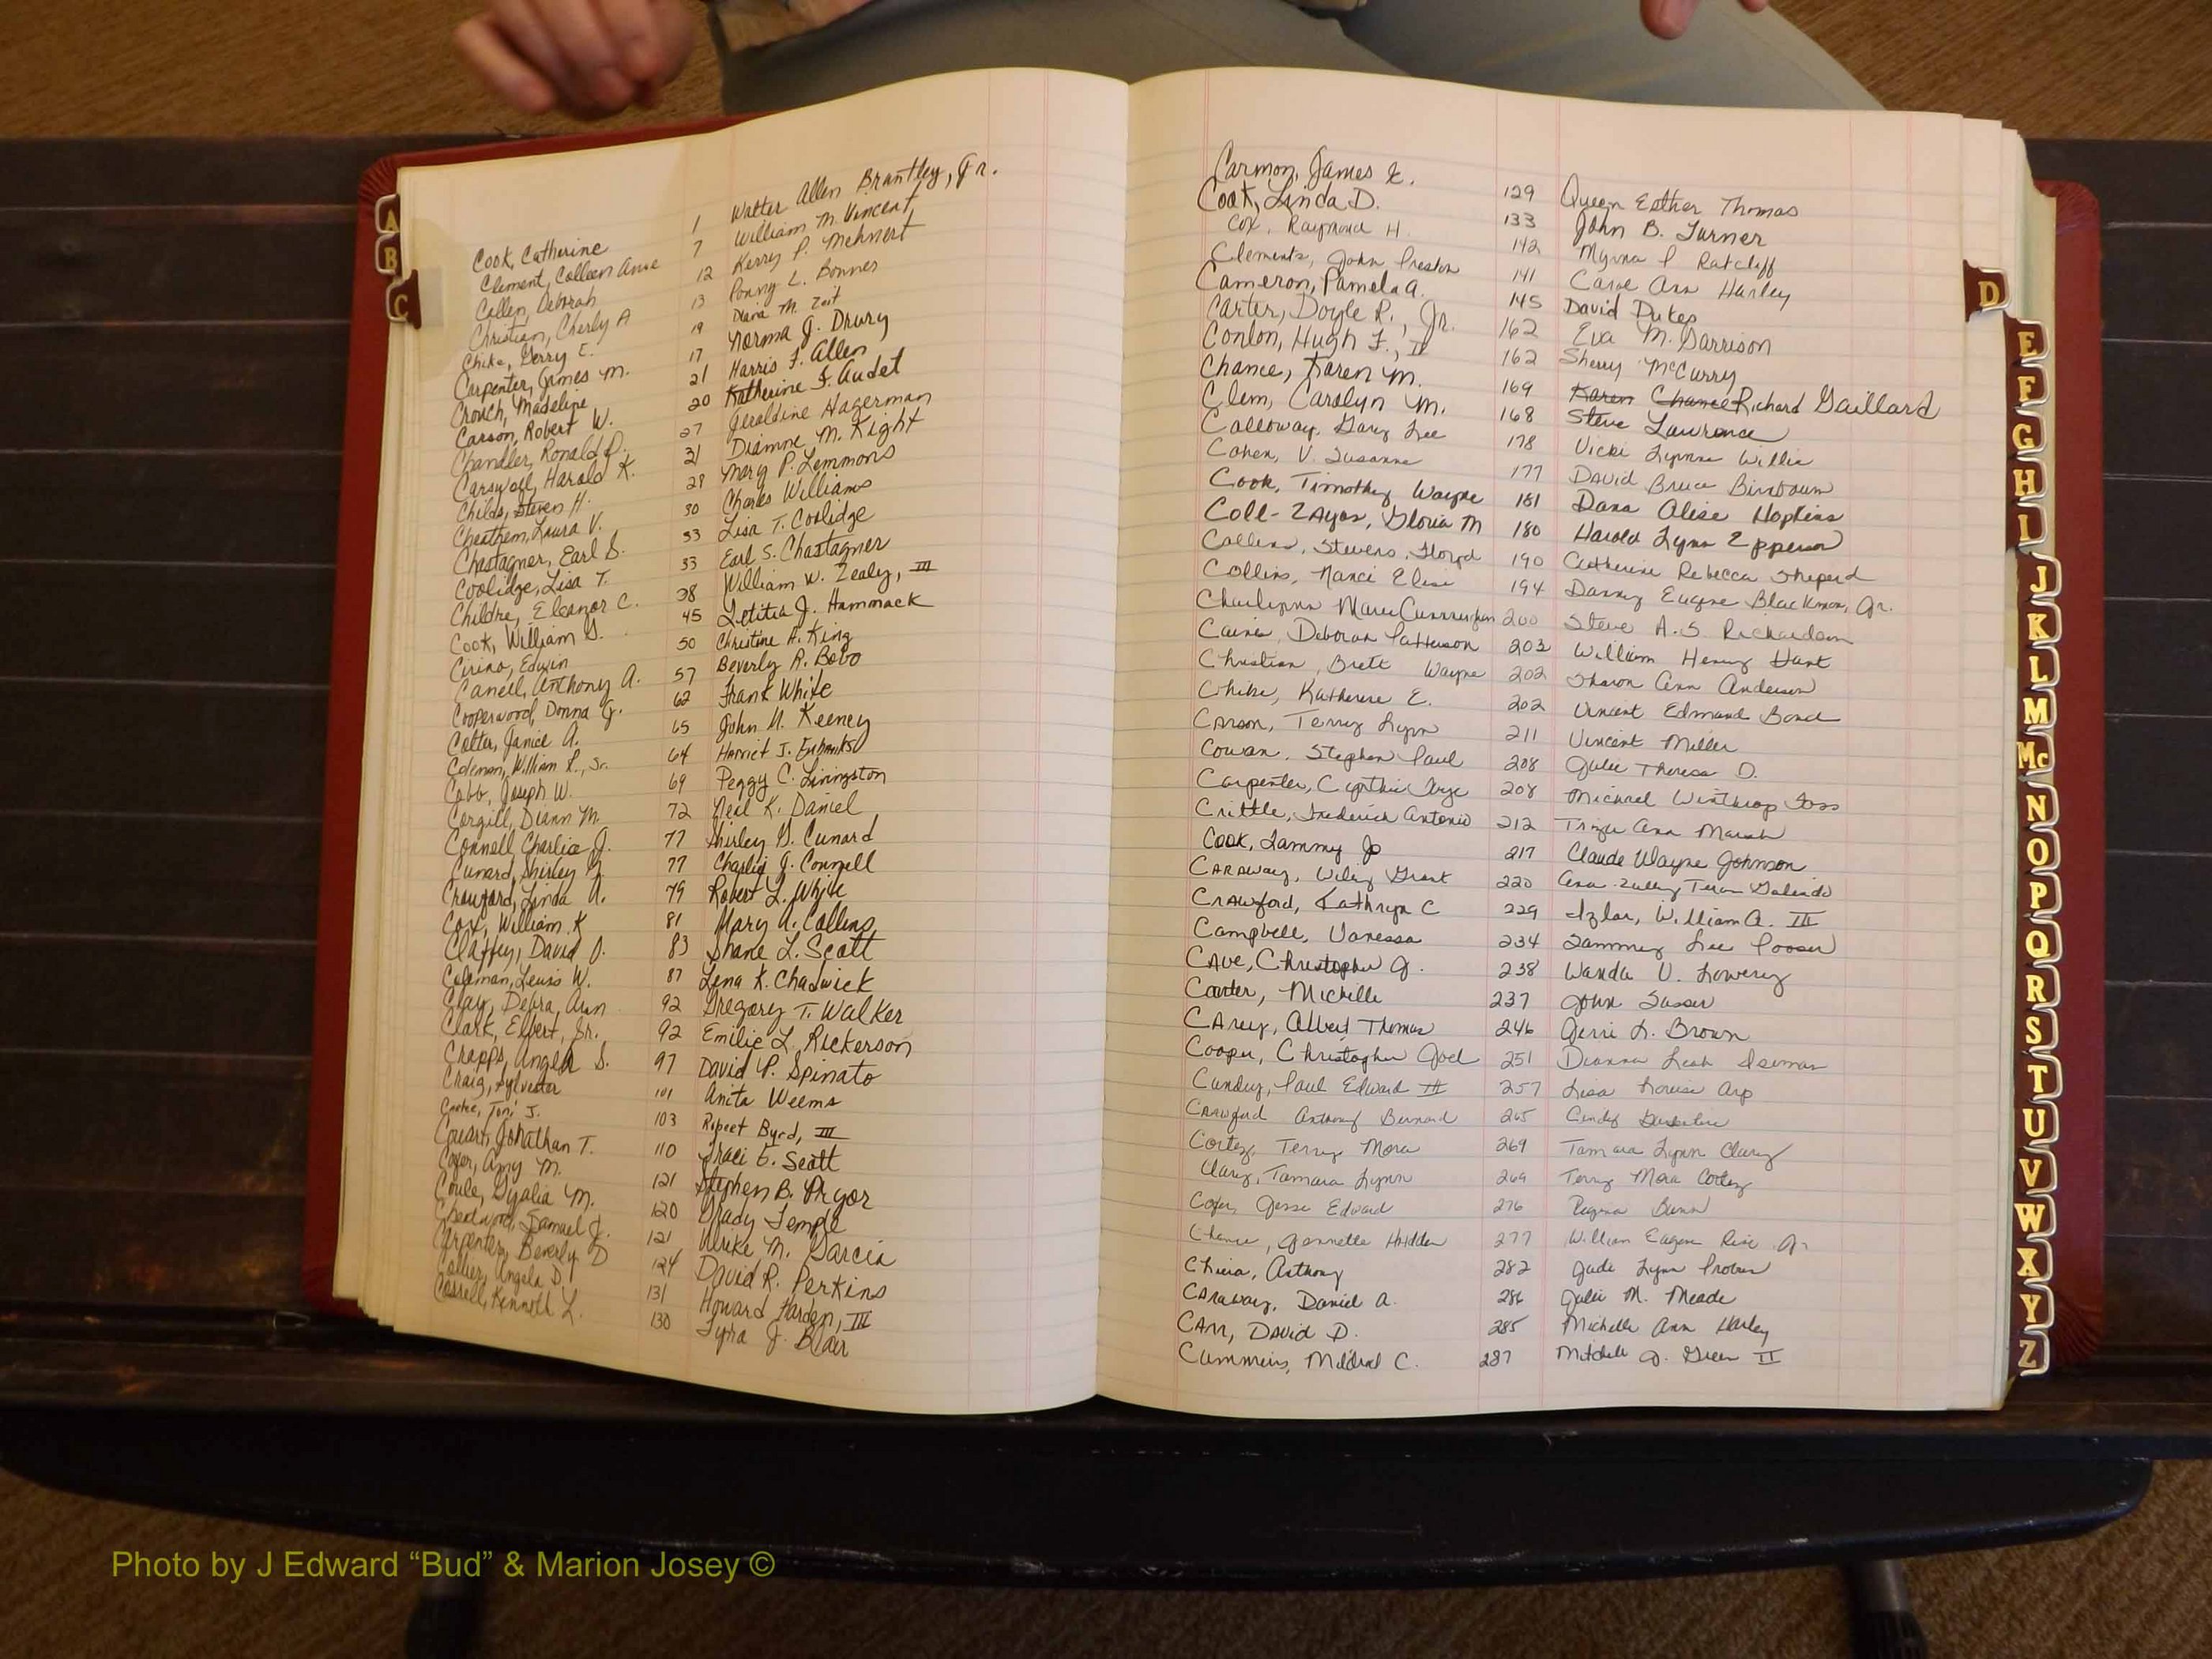 Cook, Catherine 1 Walter Allen Brantley, Jr.
Clement, Colleen Anne 7 William M. Vincent
Collen, Deborah 12 Kerry P. Mehnert
Christian, Cherly A 13 Ponny L. Bonner
Chike, Gerry E. 19 Diana M. Zeit
Carpenter, James M. 17 Norma J. Drury
Crouch, Madeline 21 Harris F. Allen
Carson, Robert W. 20 Katherine F. Audet
Chandler, Ronald P. 27 Geraldine Hagerman
Carswell, Harold K. 31 Dianne M. Kight
Childs, Steven H. 29 Mary P. Lemmons
Cheathem, Laura V. 30 Charles Williams
Chastagner, Earl S. 33 Lisa T. Coolidge
Coolidge, Lisa T. 33 Earl S. Chastagner
Childre, Eleanor C. 38 William W. Zealy, III
Cook, William G. 45 Letitia J. Hammack
Cirino, Edwin 50 Christine A. King
Canell, Anthony A. 57 Beverly R. Bobo
Cooperwood, Donna J. 62 Frank White
Colter, Janice A. 65 John H. Keeney
Coleman, William L., Sr. 64 Harriet J. Eubanks
Cobb, Joseph W. 69 Peggy C. Livingston
Cargill, Diann M. 72 Neal K. Daniel
Connell Charlie J. 77 Shirley G. Cunard
Cunard, Shirley G. 77 Charlie J. Connell
Crawford, Linda A. 79 Robert L. White
Cox, William K 81 Mary A. Collins
Claffey, David O. 83 Shane L. Scott
Coleman, Lewis W. 87 Lena K. Chadwick
Clay, Debra, Ann 92 Gregory T. Walker
Clark, Elbert, Sr. 92 Emilie L. Rickerson
Chapps, Angela S. 97 David P. Spinato
Craig, Sylvester 101 Anita Weems
Cooke, Toni J. 103 Robert Byrd, III
Cowart, Jonathan T. 110 Traci E. Scott
Cofer, Amy M. 121 Stephen B. Pryor
Coule, Gyalia M. 120 Grady Temple
Samuel J. 121 Ulrike M. Garcia
Carpenter, Beverly D 124 David R. Perkins
Collier, Angela D. 131 Howard Harden, III
Cassell, Kenneth L. 130 Tyra J. Blair
Carmon, James E. 129 Queen Esther Thomas
Cook, Linda D. 133 John B. Turner
Cox, Raymond H. 142 Myrna P Ratcliff
Clements, John Preston 141 Carol Ann Harley
Cameron, Pamela A. 145 David Dukes
Carter, Doyle R., Jr. 162 Eva M. Garrison
Conlon, Hugh F., II 162 Sherry McCurry
Chance, Karen M. 169 Karen Chance Richard Gaillard
Clem, Carolyn M. 168 Steve Lawrence
Calloway, Gary Lee 178 Vicki Lynne Willie
Cohen, V. Susanne 177 David Bruce Birnbaum
Cook, Timothy Wayne 181 Dana Alise Hopkins
Coll-Zayas, Gloria M 180 Harold Lynn Epperson
Collins, Stevens Floyd 190 Catherine Rebecca Sheperd
Collins, Nanci Elise 194 Danny Eugene Blackmon, Jr.
Charlynn Marie Cunningham 200 Steve A.S. Richardson
Caines, Deborah Patterson 203 William Henry Hart
Christian, Brett Wayne 202 Sharon Ann Anderson
Chike, Katherine E. 202 Vincent Edmund Bond
Carson, Terry Lynn 211 Vincent Miller
Cowan, Stephen Paul 208 Julie Theresa D.
Carpenter, Cynthia Faye 208 Michael Winthrop Foss
Crittle, Frederick Antonio 212 Trizie Ann Marsh
Cook, Tammy Jo 217 Claude Wayne Johnson
Caraway, Wiley Grant 220 Ana Zulley Teran Galindo
Crawford, Kathryn C 229 Izlar, William A. III
Campbell, Vanessa 234 Sammy Lee Pooser
Cave, Christopher J. 238 Wanda V. Lowery
Carter, Michelle 237 John Sasser
Carey, Albert Thomas 246 Gerri L. Brown
Cooper, Christopher Joel 251 Deanna Leah Iseman
Cundey, Paul Edward III 257 Lisa Louise Arp
Crawford Anthony Bernard 265 Cindy
Cortez, Terry Mora 269 Tamara Lynn Clary
Clary, Tamara Lynn 269 Terry Mora Cortez
Cofer, Jesse Edward 276 Regina Bunn
Chance, Jennette Hadden 277 William Eugene Rise Jr
Chicia, Anthony 282 Jude Lynn Probus
Caraway, Daniel A. 286 Julie M. Meade
Carr, David D. 285 Michelle Ann Harley
Cummins, Mildred C. 287 Mitchell J. Green II
A
B
C
D
E
F
G
H
I
J
K
L
M
Mc
N
O
P
Q
R
S
T
U
V
W
X
Y
Z
Photo by J Edward “Bud” & Marion Josey ©